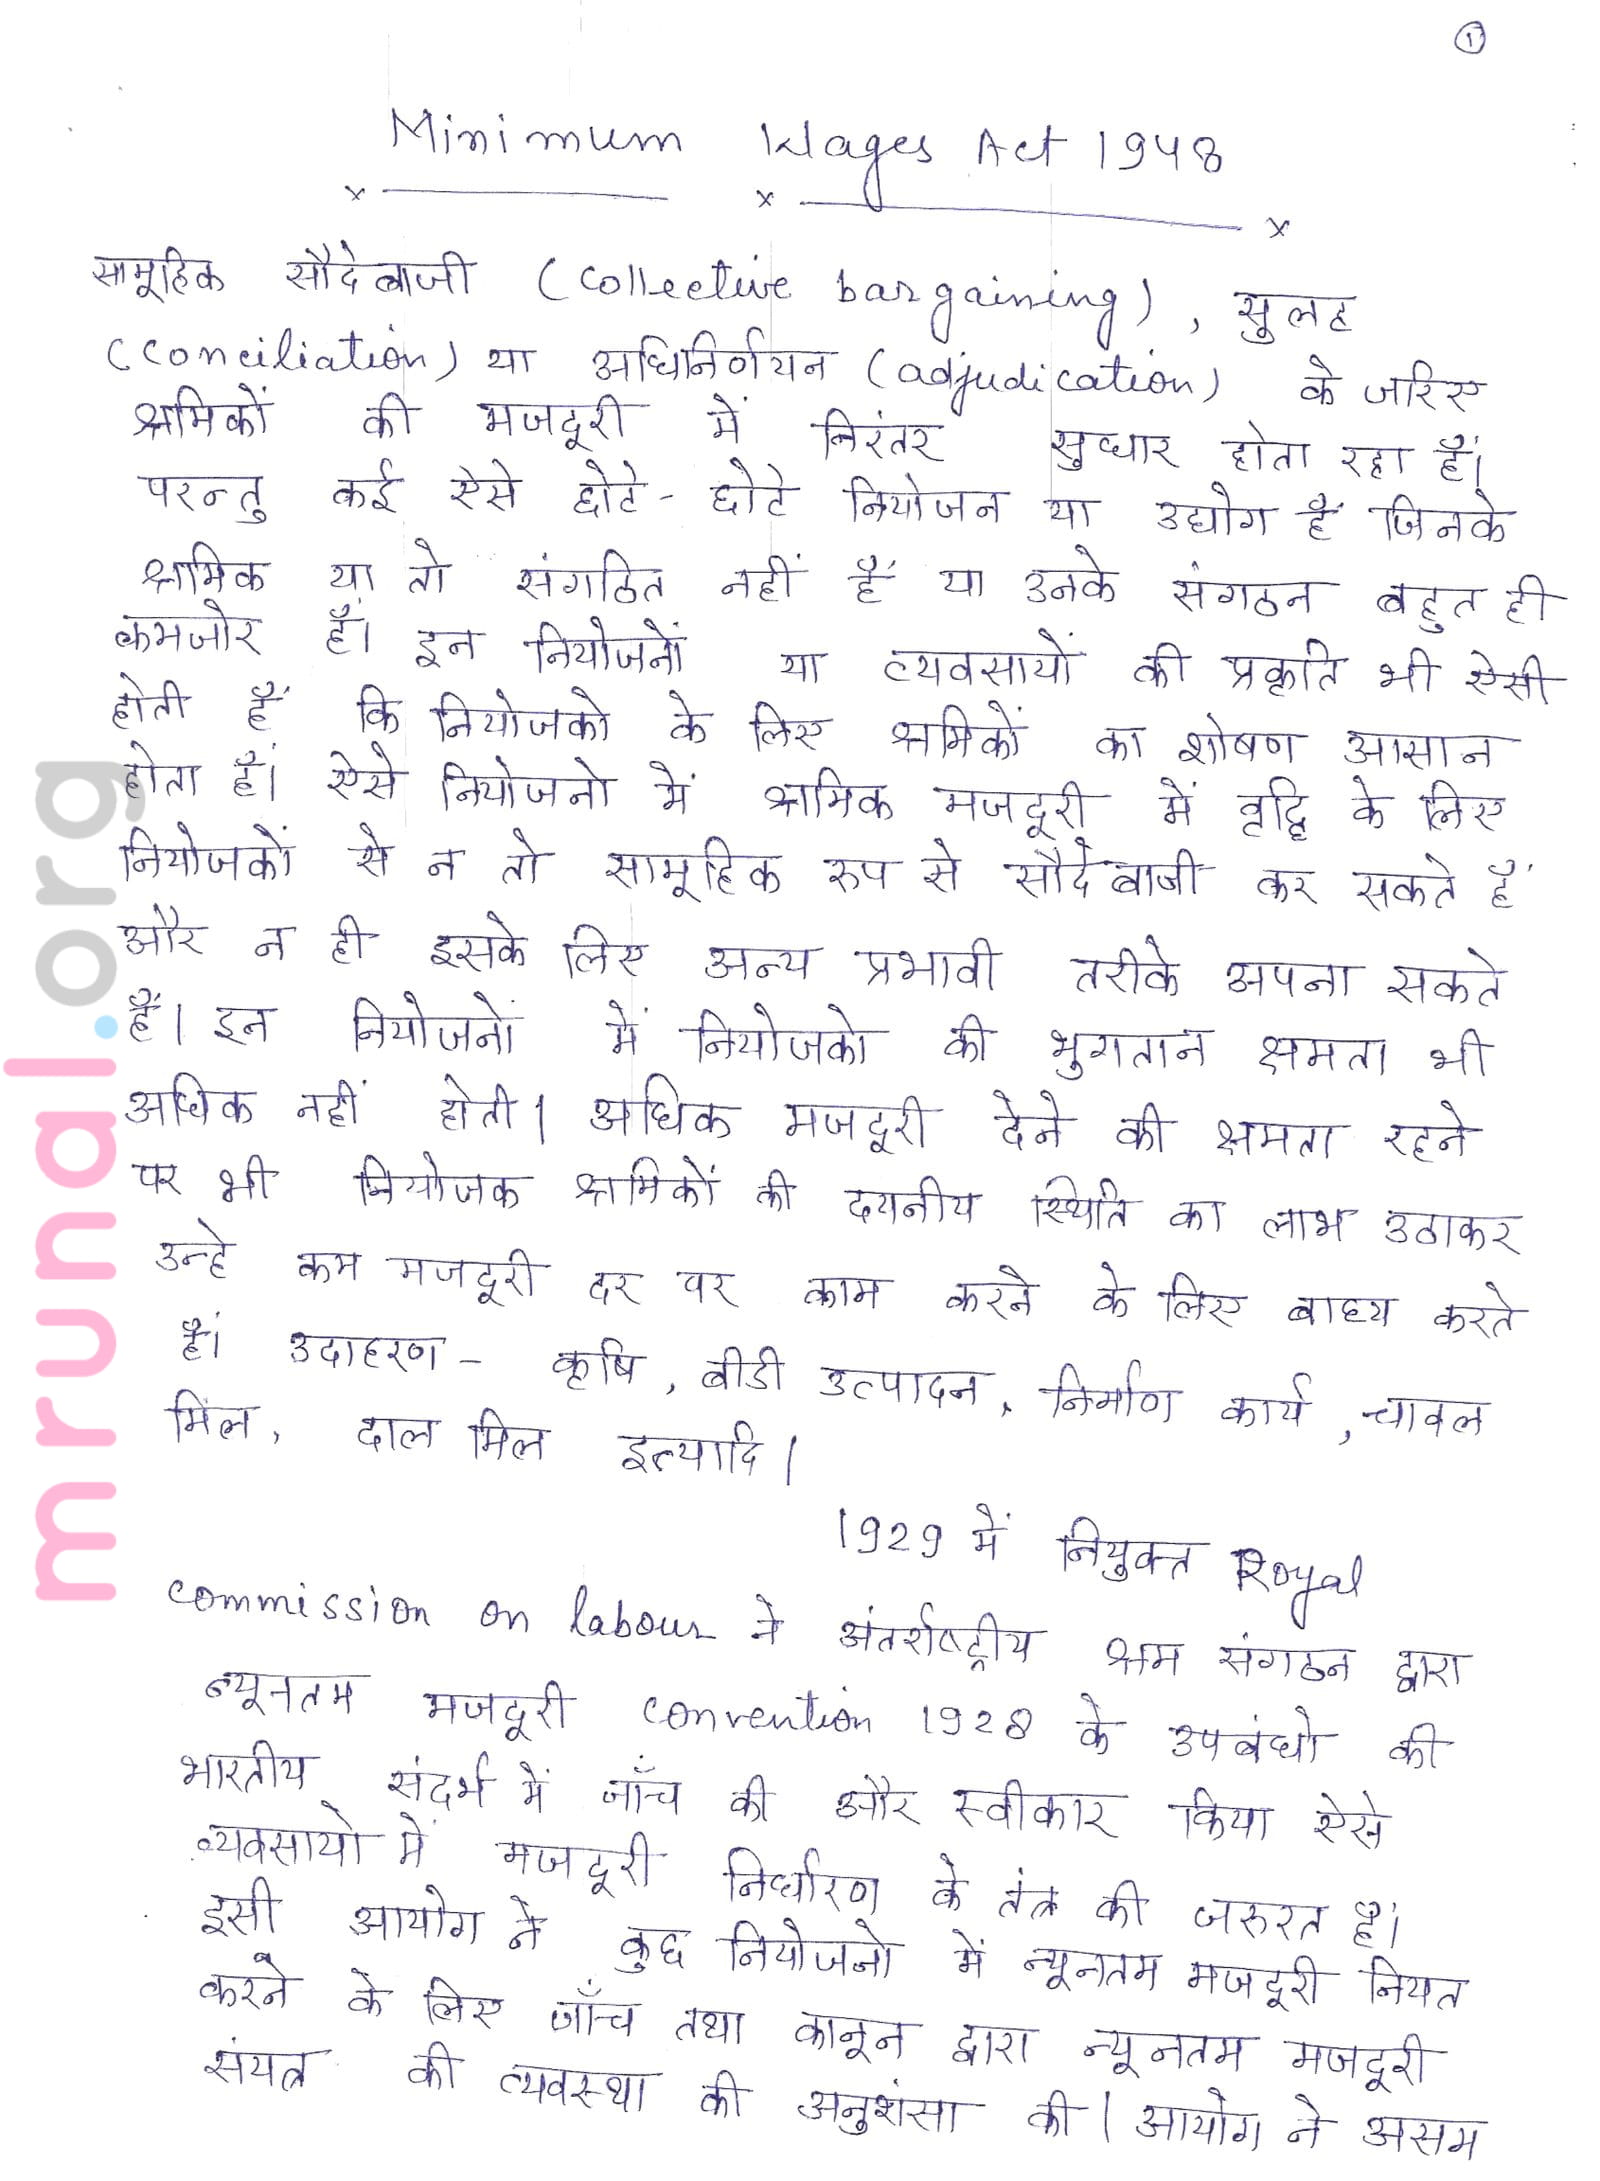 1
Minimum Wages Act 1948
सामूहिक सौदेबाजी (collective bargaining), सुलह
(conciliation) या अधिनिर्णयन (adjudication) के जरिए
श्रमिकों की मजदूरी में निरंतर सुधार होता रहा हैं।
परन्तु कई ऐसे छोटे-छोटे नियोजन या उद्योग हैं जिनके
श्रमिक या तो संगठित नहीं हैं या उनके संगठन बहुत ही
कमजोर हैं। इन नियोजनों या व्यवसायों की प्रकृति भी ऐसी
होती हैं कि नियोजको के लिए श्रमिकों का शोषण आसान
होता हैं। ऐसे नियोजनो में श्रमिक मजदूरी में वृद्धि के लिए
नियोजकों से न तो सामूहिक रुप से सौदेबाजी कर सकते हैं
और न ही इसके लिए अन्य प्रभावी तरीके अपना सकते
हैं। इन नियोजनों में नियोजको की भुगतान क्षमता भी
अधिक नहीं होती। अधिक मजदूरी देने की क्षमता रहने
पर भी नियोजक श्रमिकों की दयनीय स्थिति का लाभ उठाकर
उन्हे कम मजदूरी दर पर काम करने के लिए बाध्य करते
हैं। उदाहरण - कृषि, बीडी उत्पादन, निर्माण कार्य, चावल
मिल, दाल मिल इत्यादि।
1929 में नियुक्त Royal
commission on labour ने अंतर्राष्ट्रीय श्रम संगठन द्वारा
न्यूनतम मजदूरी convention 1928 के उपबंधो की
भारतीय संदर्भ में जाँच की और स्वीकार किया ऐसे
व्यवसायो में मजदूरी निर्धारण के तंत्र की जरुरत हैं।
इसी आयोग ने कुछ नियोजनो में न्यूनतम मजदूरी नियत
करने के लिए जाँच तथा कानून द्वारा न्यूनतम मजदूरी
संयत्र की व्यवस्था की अनुशंसा की। आयोग ने असम
mrunal.org